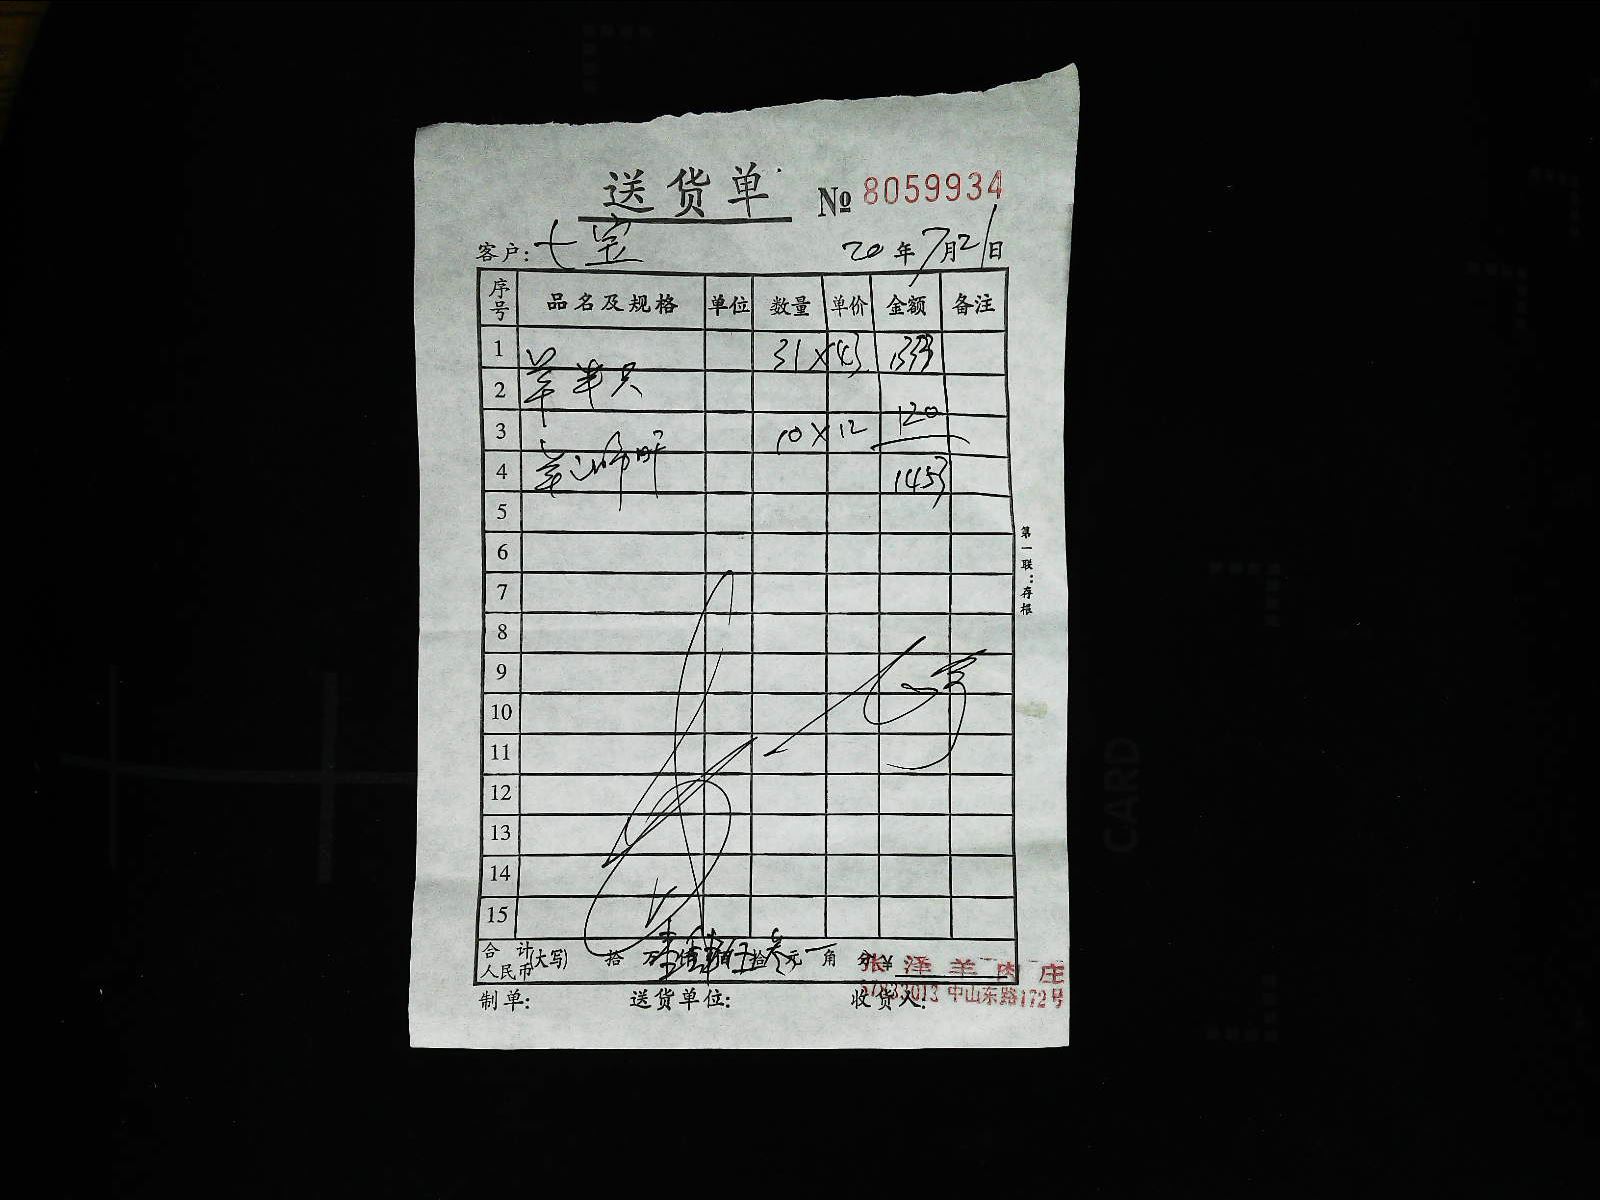 送货单 № 8059934
客户: 七宝 20年7月21日
序号 品名及规格 单位 数量 单价 金额 备注
1 31×43 1333
2 羊半只
120
3 10×12
4 羊 1453
5
6
7
8
9
10
11
12
13
14
15
第一联:存根
合计人民币(大写) 拾 万壹仟肆佰伍拾叁元一角 分¥
张泽羊肉庄
制单: 送货单位: 收货人:
57833013 中山东路172号
CARD